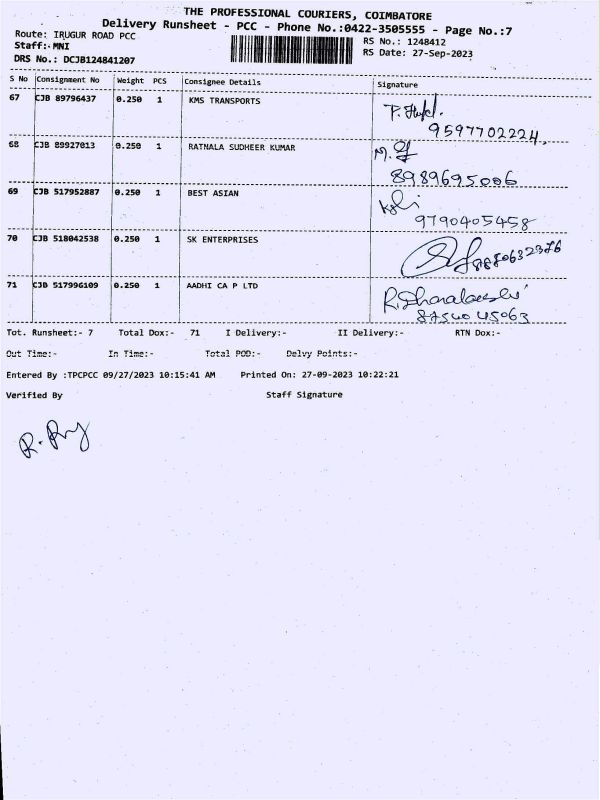 THE PROFESSIONAL COURIERS, COIMBATORE
Delivery Runsheet - PCC - Phone No.:0422-3505555 - Page No.:7
Route: IRUGUR ROAD PCC
RS No.: 1248412
Staff:-MNI
RS Date: 27-Sep-2023
DRS No.: DCJB124841207
S No Consignment No Weight PCS Consignee Details Signature
67 CJB 89796437 0.250 1 KMS TRANSPORTS
9597702224
68 CJB 89927013 0.250 1 RATNALA SUDHEER KUMAR M.
8989695006
69 CJB 517952887 0.250 1 BEST ASIAN
9790405458
70 CJB 518042538 0.250 1 SK ENTERPRISES
8880632376
71 CJB 517996109 0.250 1 AADHI CA P LTD
8754045063
Tot. Runsheet:- 7 Total Dox:- 71 I Delivery:- II Delivery:- RTN Dox:-
Out Time:- In Time:- Total POD:- Delvy Points:-
Entered By :TPCPCC 09/27/2023 10:15:41 AM Printed On: 27-09-2023 10:22:21
Verified By Staff Signature